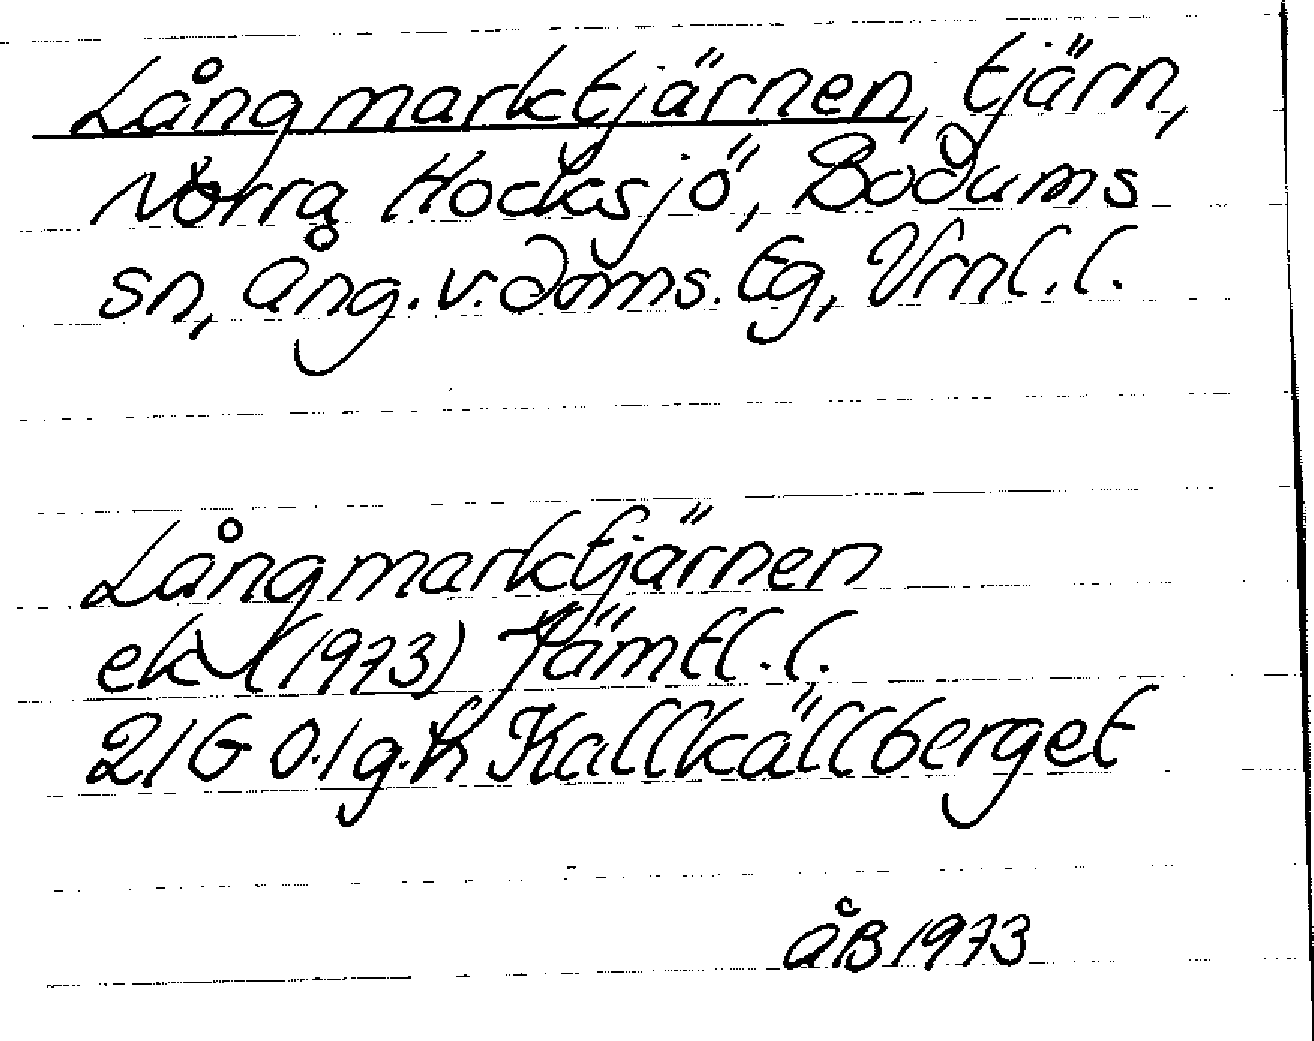 Långmarktjärnen, tjärn,
Norra Hocksjö, Bodums
sn, Ång. v. doms. tg, Vrnl. l.
Långmarktjärnen
ek (1973) Jämtl. l.
21G 0.1 g.k Kallkällberget
ÅB 1973